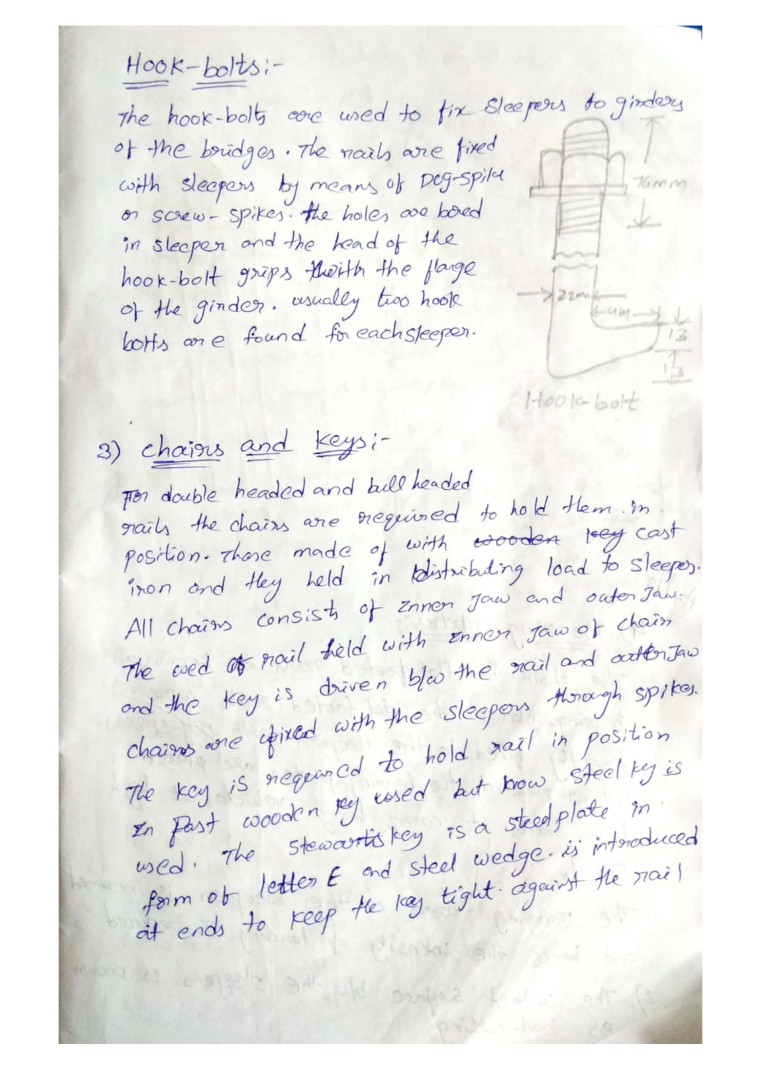 Hook-bolts:-
The hook-bolts are used to fix sleepers to girders
of the bridges. The rails are fixed
with sleepers by means of Dog-spike
or screw-spikes. the holes are bored
in sleeper and the head of the
hook-bolt grips with the flange
of the girder. usually two hook
bolts are found for each sleeper.
76mm
22mm
13
13
Hook-bolt
3) chairs and keys:-
For double headed and bull headed
rails the chairs are required to hold them in
position. These made of with wooden key cast
iron and they held in distributing load to sleepers.
All chairs consist of Inner Jaw and outer Jaw.
The wed of rail held with Inner Jaw of chair
and the key is driven b/w the rail and outter Jaw
chairs are fixed with the sleepers through spikes.
The key is required to hold rail in position
In Past wooden key used but know steel key is
used. The Stewartis key is a steel plate in
form of letter E and steel wedge. is introduced
at ends to keep the key tight against the rail